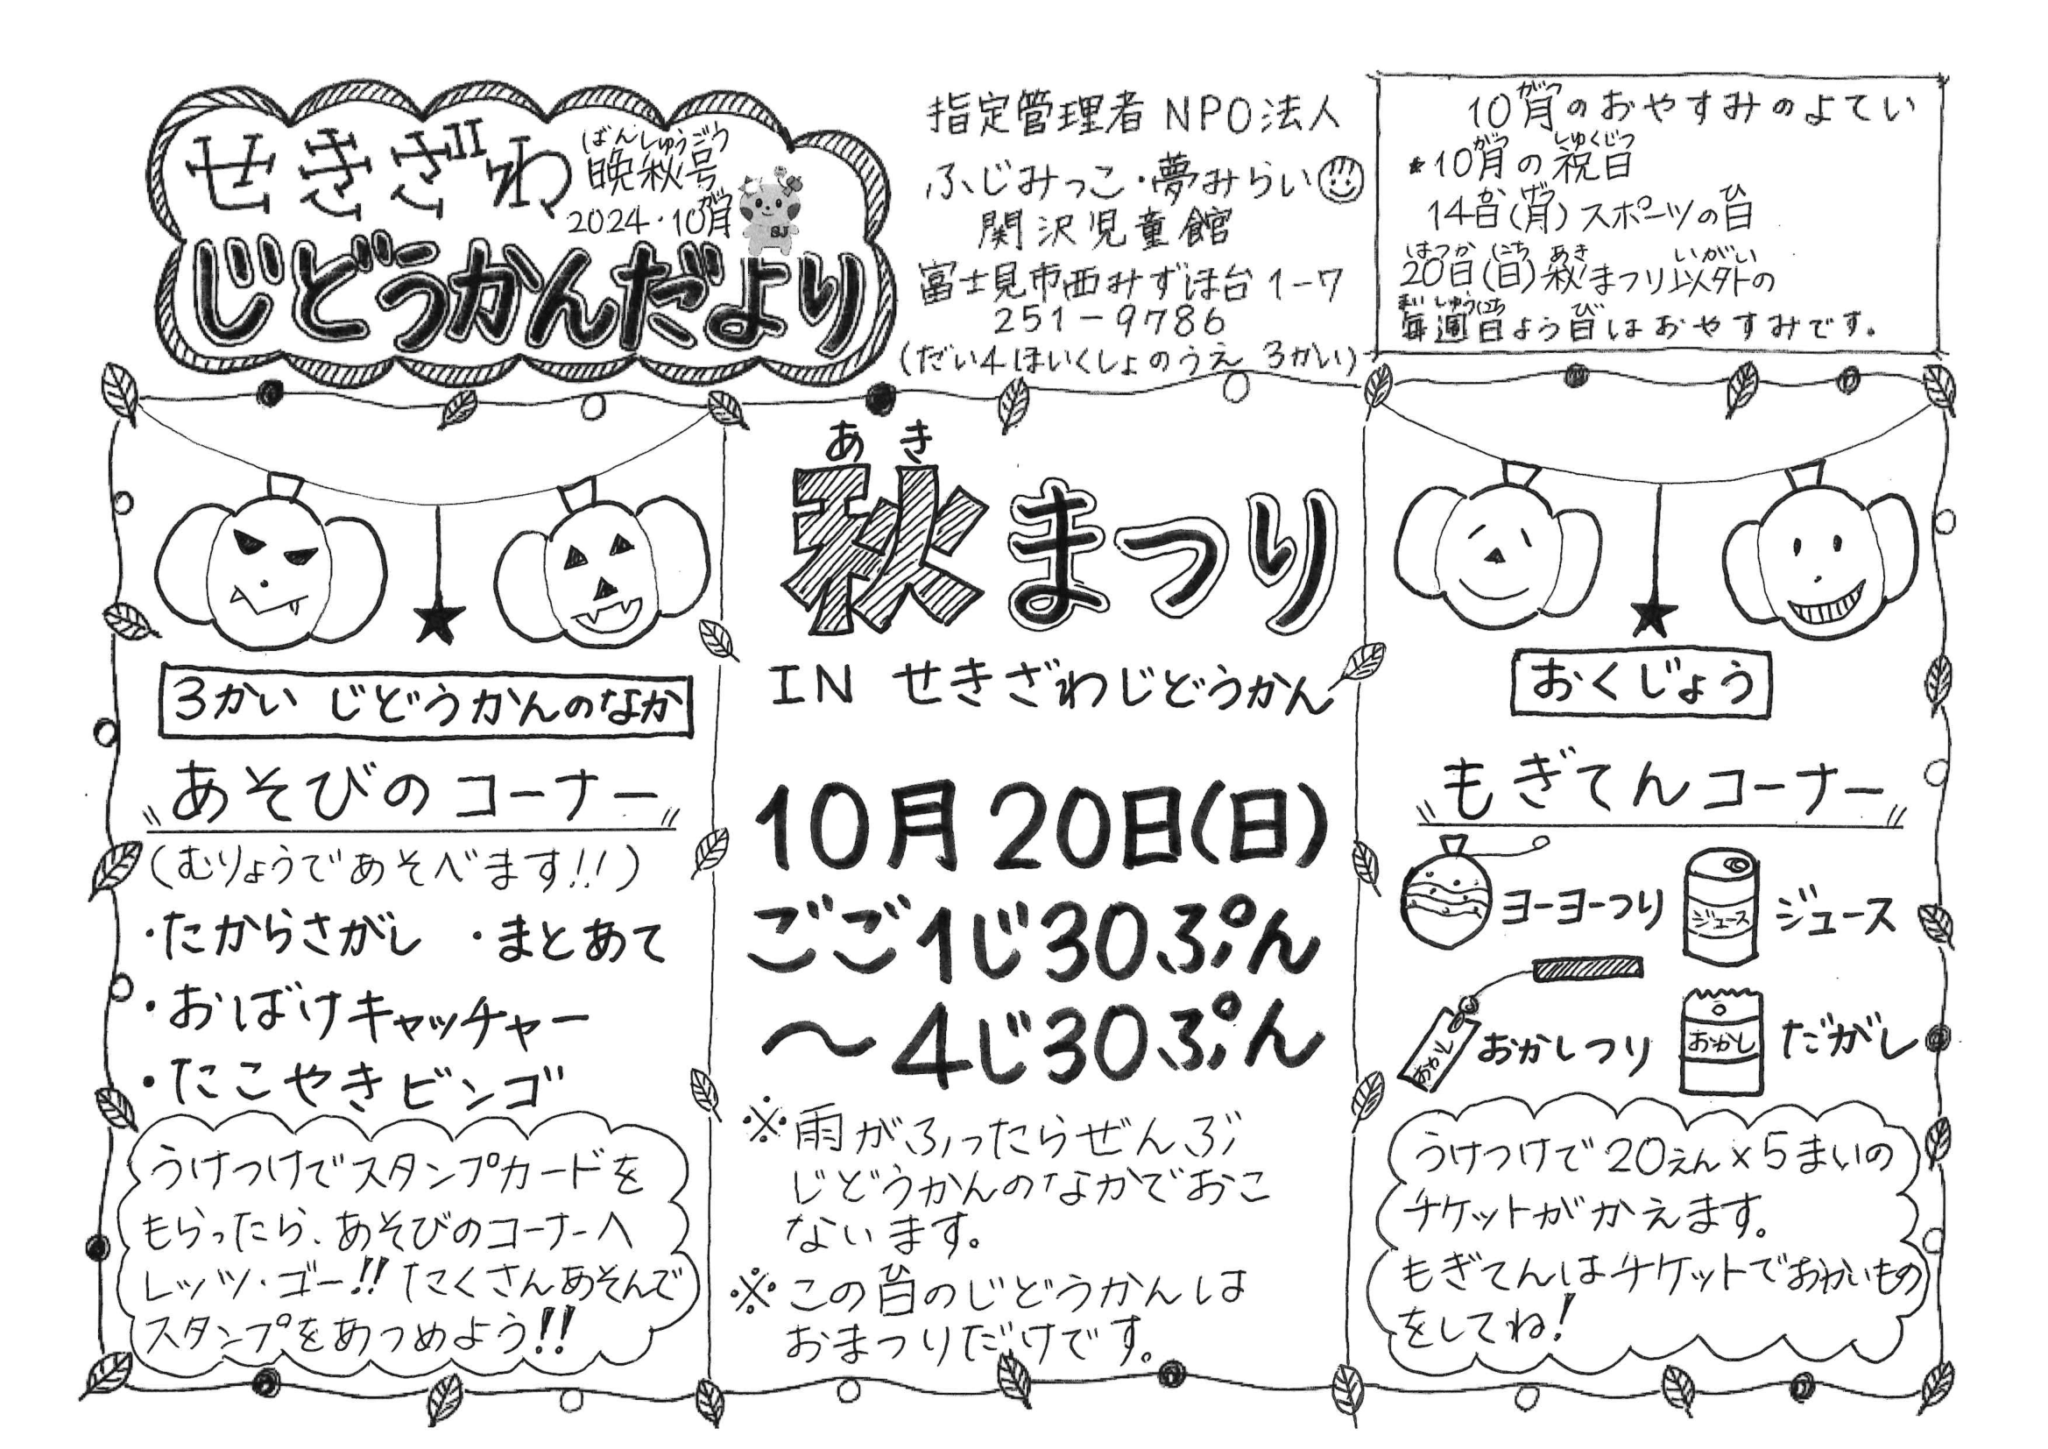 せきざわ
ばんしゅうごう
晩秋号
がつ
2024・10月
SJ
じどうかんだより
指定管理者 NPO法人
ふじみっこ・夢みらい
関沢児童館
富士見市西みずほ台1-7
251-9786
(だい4ほいくしょのうえ 3かい)
がつ
10月のおやすみのよてい
がつ しゅくじつ
*10月の祝日
か げつ ひ
14日(月)スポーツの日
はつか にち あき いがい
20日(日)秋まつり以外の
まい しゅう にち び
毎週日よう日はおやすみです。
3かい じどうかんのなか
あそびのコーナー
(むりょうであそべます!!)
・たからさがし ・まとあて
・おばけキャッチャー
・たこやきビンゴ
うけつけでスタンプカードを
もらったら、あそびのコーナーへ
レッツ・ゴー!! たくさんあそんで
スタンプをあつめよう!!
あき
秋まつり
IN せきざわじどうかん
10月20日(日)
ごご1じ30ぷん
〜4じ30ぷん
※雨がふったらぜんぶ
じどうかんのなかでおこ
ないます。
ひ
※この日のじどうかんは
おまつりだけです。
おくじょう
もぎてんコーナー
ヨーヨーつり
ジュース
ジュース
おかし
おかしつり
おかし
だがし
うけつけで20えん×5まいの
チケットがかえます。
もぎてんはチケットでおかいもの
をしてね!